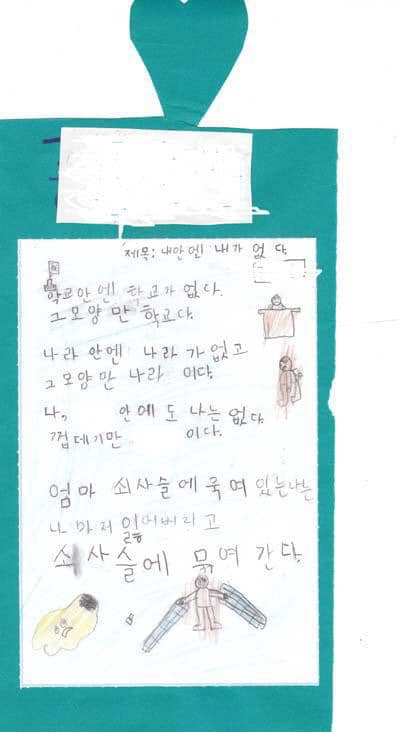 제목: 내안엔 내가 없다.
학교안엔 학교가 없다.
그모양 만 학교다.
나라 안엔 나라가 없고
그모양만 나라 이다.
나, 안에도 나는 없다.
껍데기만 이다.
엄마 쇠사슬에 묵여 있는나는
나 마저 잃어버리고
쇠사슬에 묶여 간다.